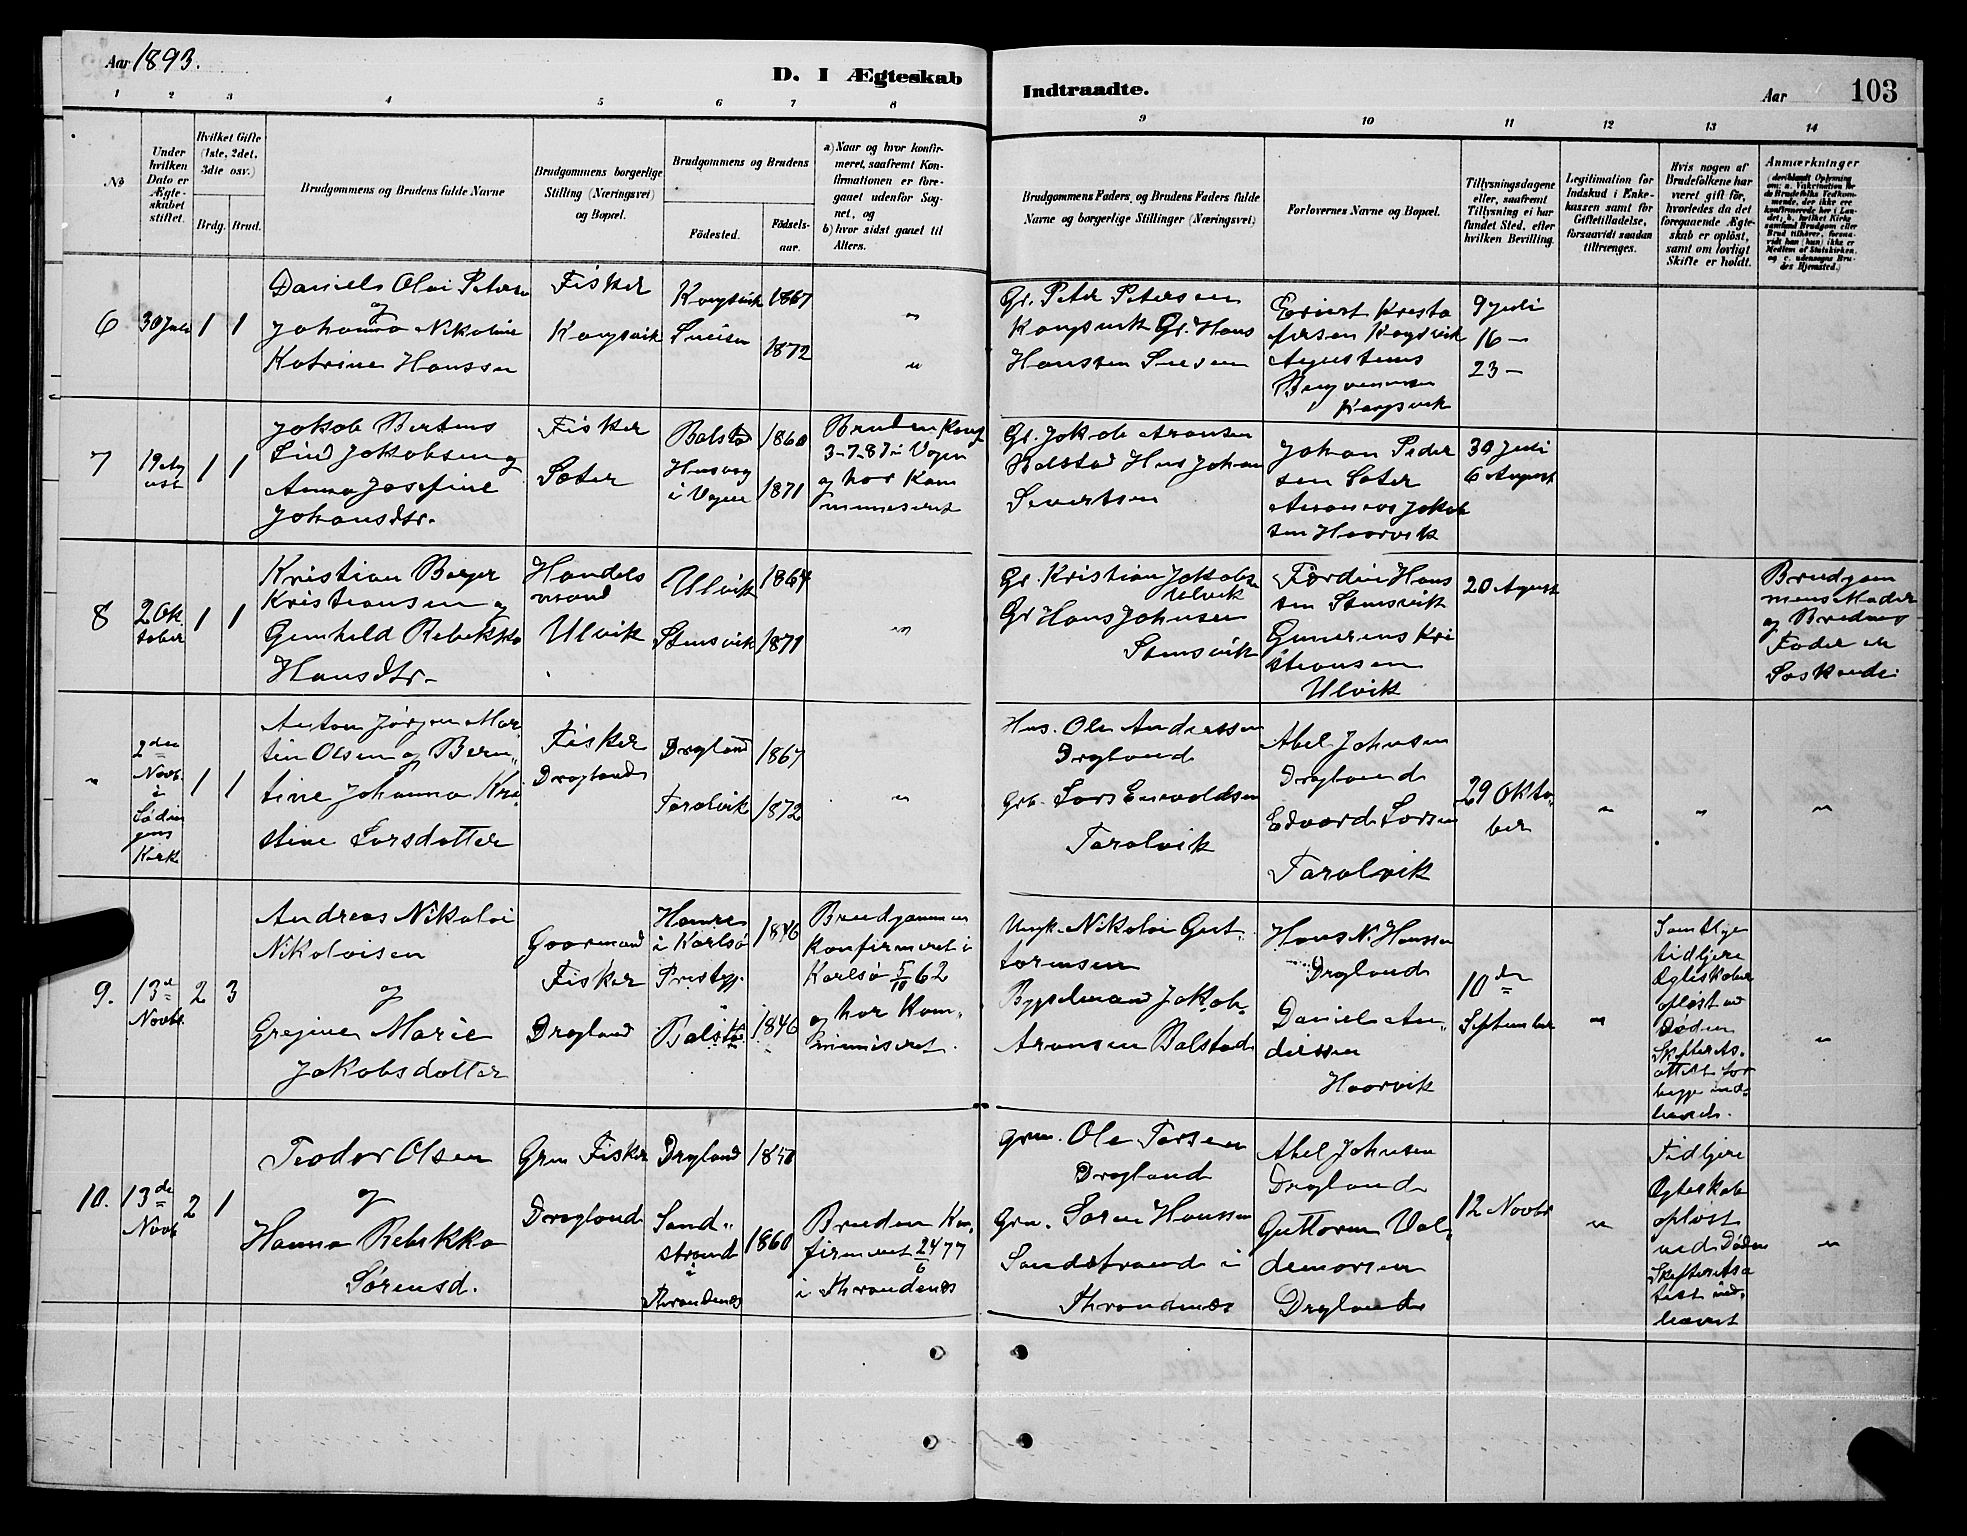 Aar 1893.
D. I Ægteskab
Indtraadte.
Aar
103
1 2 3 4 5 6 7 8
9 10 11 12 13 14
No
Under hvilken Dato er Ægteskabet stiftet.
Hvilket Gifte (1ste, 2det, 3die osv.)
Brdg. Brud.
Brudgommens og Brudens fulde Navne
Brudgommens borgerlige Stilling (Næringsvei) og Bopæl.
Brudgommens og Brudens
Födested.
Födselsaar.
a) Naar og hvor konfirmeret, saafremt Konfirmationen er foregaaet udenfor Sognet, og
b) hvor sidst gaaet til Alters.
Brudgommens Faders, og Brudens Faders fulde Navne og borgerlige Stillinger (Næringsvei)
Forlovernes Navne og Bopæl.
Tillysningsdagene eller, saafremt Tillysning ei har fundet Sted, efter hvilken Bevilling.
Legitimation for Indskud i Enkekassen samt for Giftetilladelse, forsaavidt saadan tiltrænges.
Hvis nogen af Brudefolkene har været gift för, hvorledes da det foregaaende Ægteskab er oplöst, samt om lovligt Skifte er holdt.
Anmærkninger
6
30 Juli
1 1
Daniel Olai Petersen
og
Johanna Nikoline
Katrine Hanssen
Fisker
Kongsvik
Kongsvik 1867
1872
"
"
Gr. Peter Petersen
Kongsvik Gr. Hans
Hanssen
Kristo
fersen Kongsvik
Kongsvik
9 Juli
16 –
23 –
7
19 Aug
ust
1 1
Jakob Berteus
Lind Jakobsen og
Anna Josefine
Johansdtr.
Fisker
Sæter
Balstad 1860
i Vogen 1871
Bruden Konf
3-7-87 i Vogen
og har Kom
municeret
Gr. Jakob Aronsen
Balstad Hus Johan
Sivertsen
Johan Peder
sen Sæter
Jakob
sen Haarvik
30 Juli
6 August
8
2 Ok
tober
1 1
Kristian Berger
Kristiansen og
Gunhild Rebekka
Hansdtr.
Handels
mand
Ulvik
Ulvik 1864
Stensvik 1871
"
Gr. Kristian Jakobsen
Ulvik
Gr Hans Johnsen
Stensvik
Fordin Hans
sen Stensvik
Gunerius Kri
stiansen
Ulvik
20 August
Brudgom
mens Moder
og Brudens
Fader er
Søskende
"
2den
Novb.
i
Lødin
gens
Kirke
1 1
Anton Jørgen Mar
tin Olsen og Bern„
tine Johanna Kri„
stine Larsdatter
Fisker
Dragland
Dragland 1867
Taralvik 1872
"
Hus. Ole Andreassen
Dragland
Grb. Lars Enevoldsen
Taralvik
Abel Johnsen
Dragland
Edvard Larsen
Taralvik
29 Okto„
ber
" " "
9.
13de
Novbr.
2 3
Andreas Nikolai
Nikolaisen
og
Gregine Marie
Jakobsdatter
Gaardmand
Fisker
Dragland
Hamre
i Karlsø
Præstgj.
1846
Balstad 1846
Brudgommen
Konfirmeret i
Karlsø 5/10 62
og har Kom„
municeret.
Ungk. Nikolai Gut„
tormsen
Bygselmand Jakob
Aronsen Balstad
Hans N. Hanssen
Dragland
Daniel An„
dreassen
Haarvik
10de
September
"
Samtlige
tidligere
Egteskaber
opløst ved
Døden
Skifteat„
attest for
begge ind„
leveret.
"
10.
13de
Novb
2 1
Teodor Olsen
og
Hanna Rebekka
Sørensd.
Grm Fisker
Dragland
Dragland
Sand„
strand
i
Throndenæs
1860
Bruden Kon„
firmeret 24/6 77
i Throndenæs
Grm. Ole Larsen
Dragland
Grm. Søren Hanssen
Sandstrand i
Throndenæs
Abel Johnsen
Dragland
Guttorm Val„
demarsen
Dragland
12 Novbr
"
Tidligere
Egteskab
opløst
ved Døden
Skifteat
test ind„
leveret
"